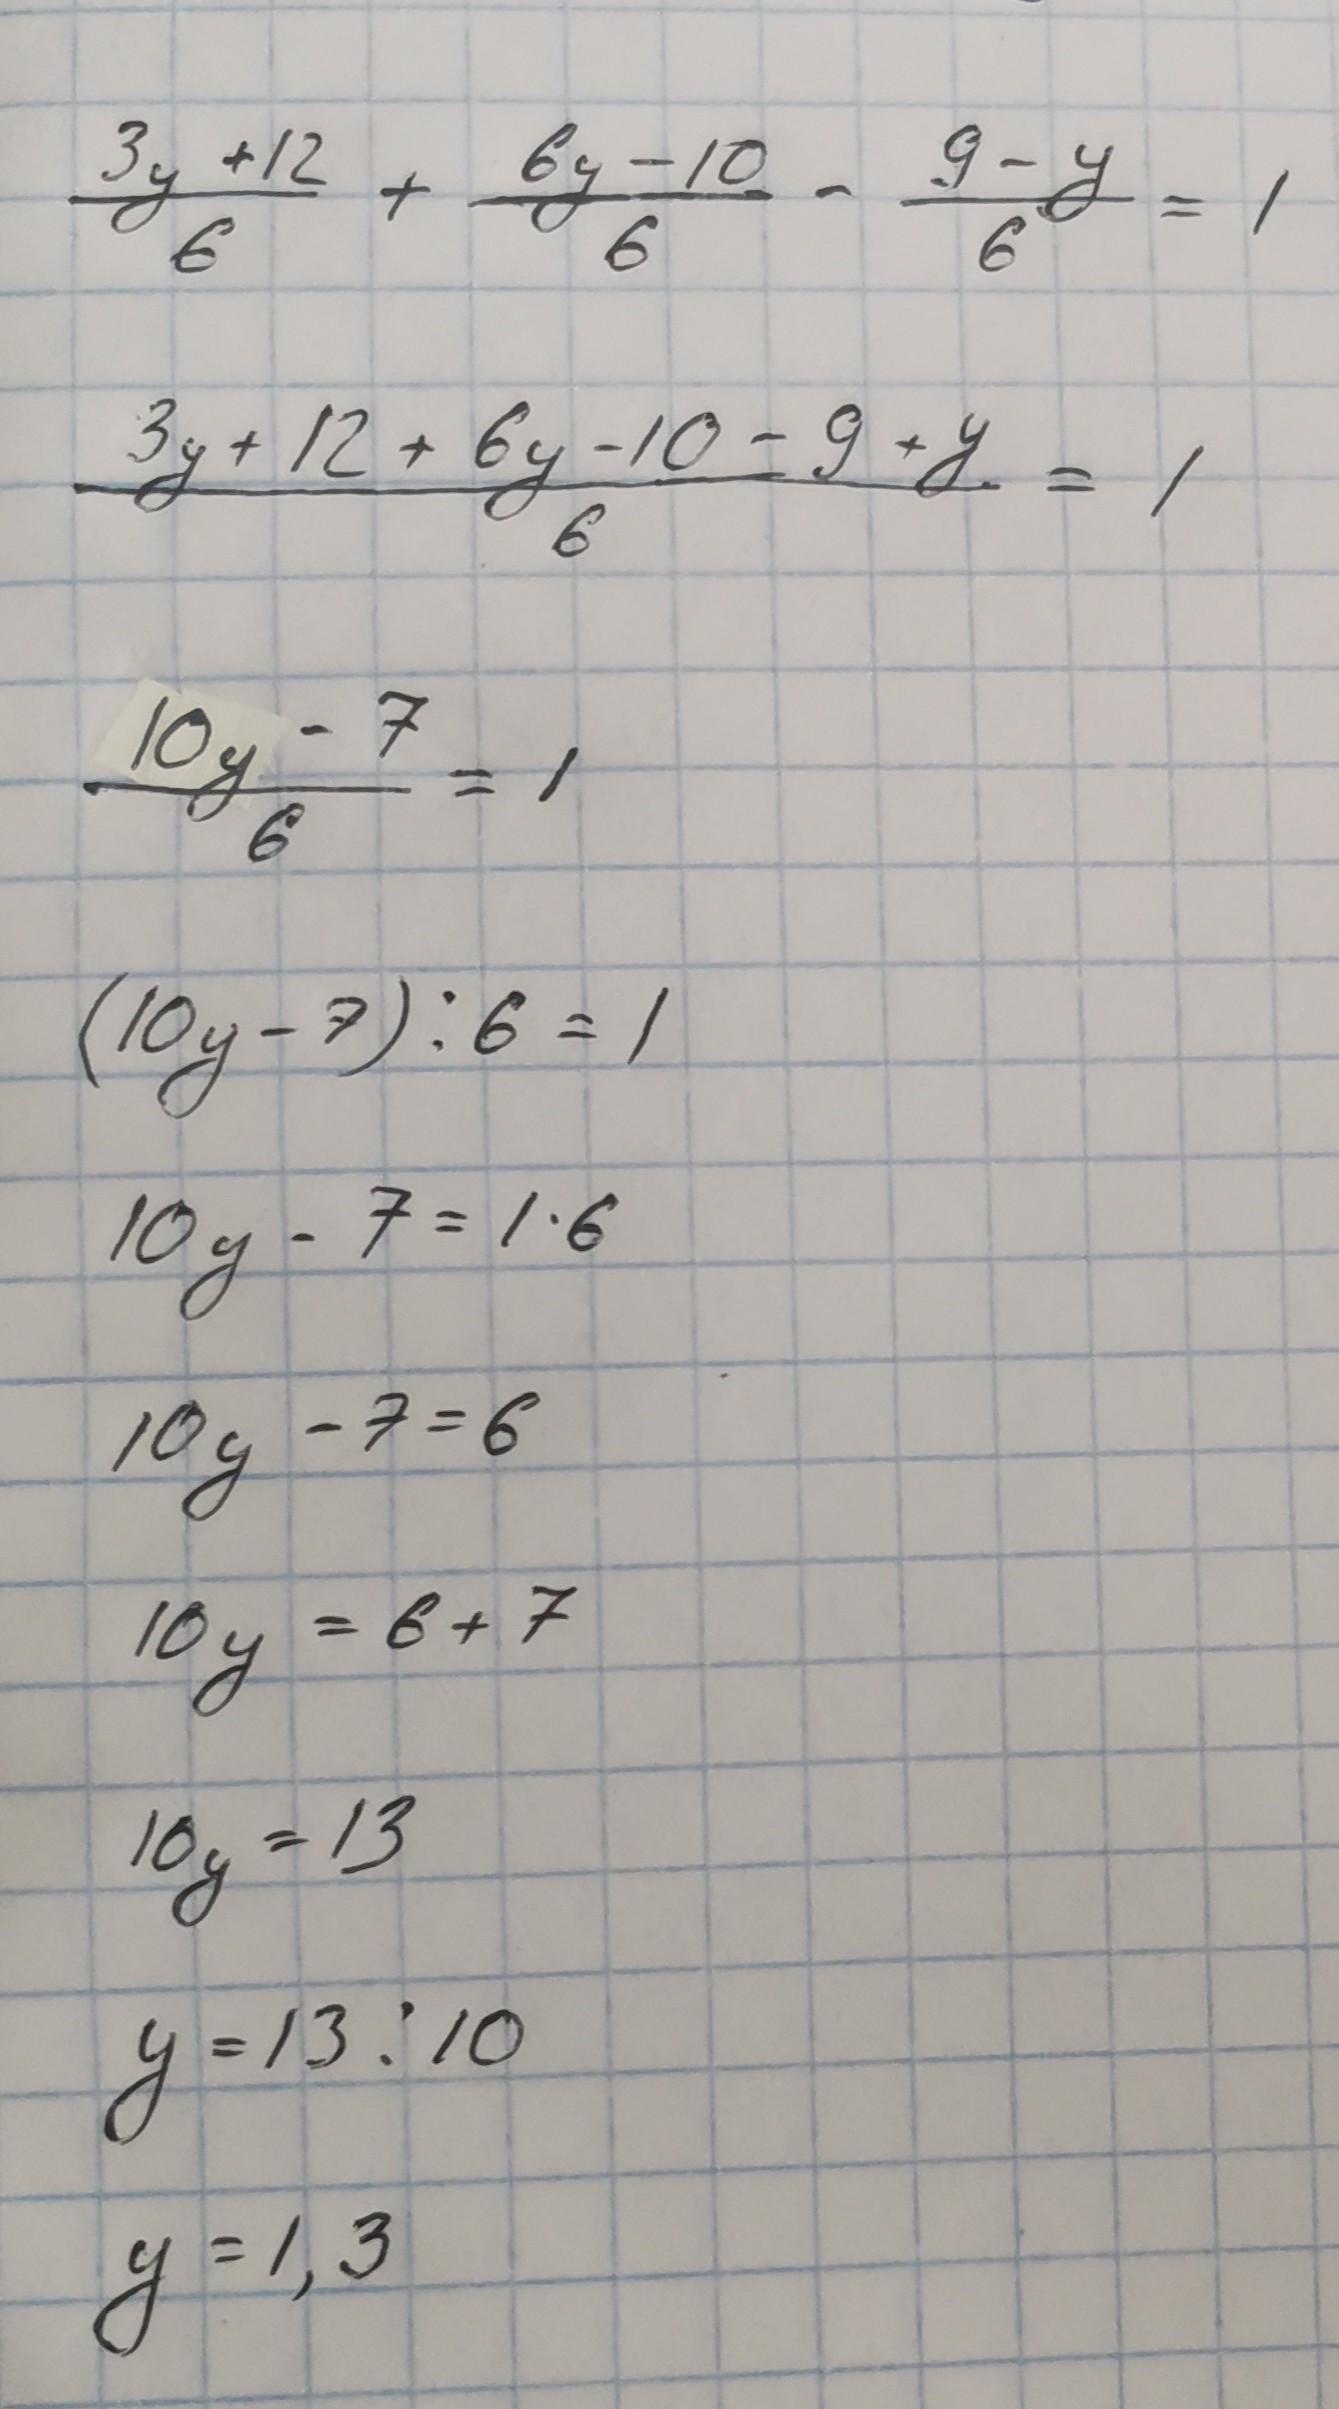 (3y + 12)/6 + (6y - 10)/6 - (9 - y)/6 = 1
(3y + 12 + 6y - 10 - 9 + y)/6 = 1
(10y - 7)/6 = 1
(10y - 7) : 6 = 1
10y - 7 = 1 · 6
10y - 7 = 6
10y = 6 + 7
10y = 13
y = 13 : 10
y = 1,3